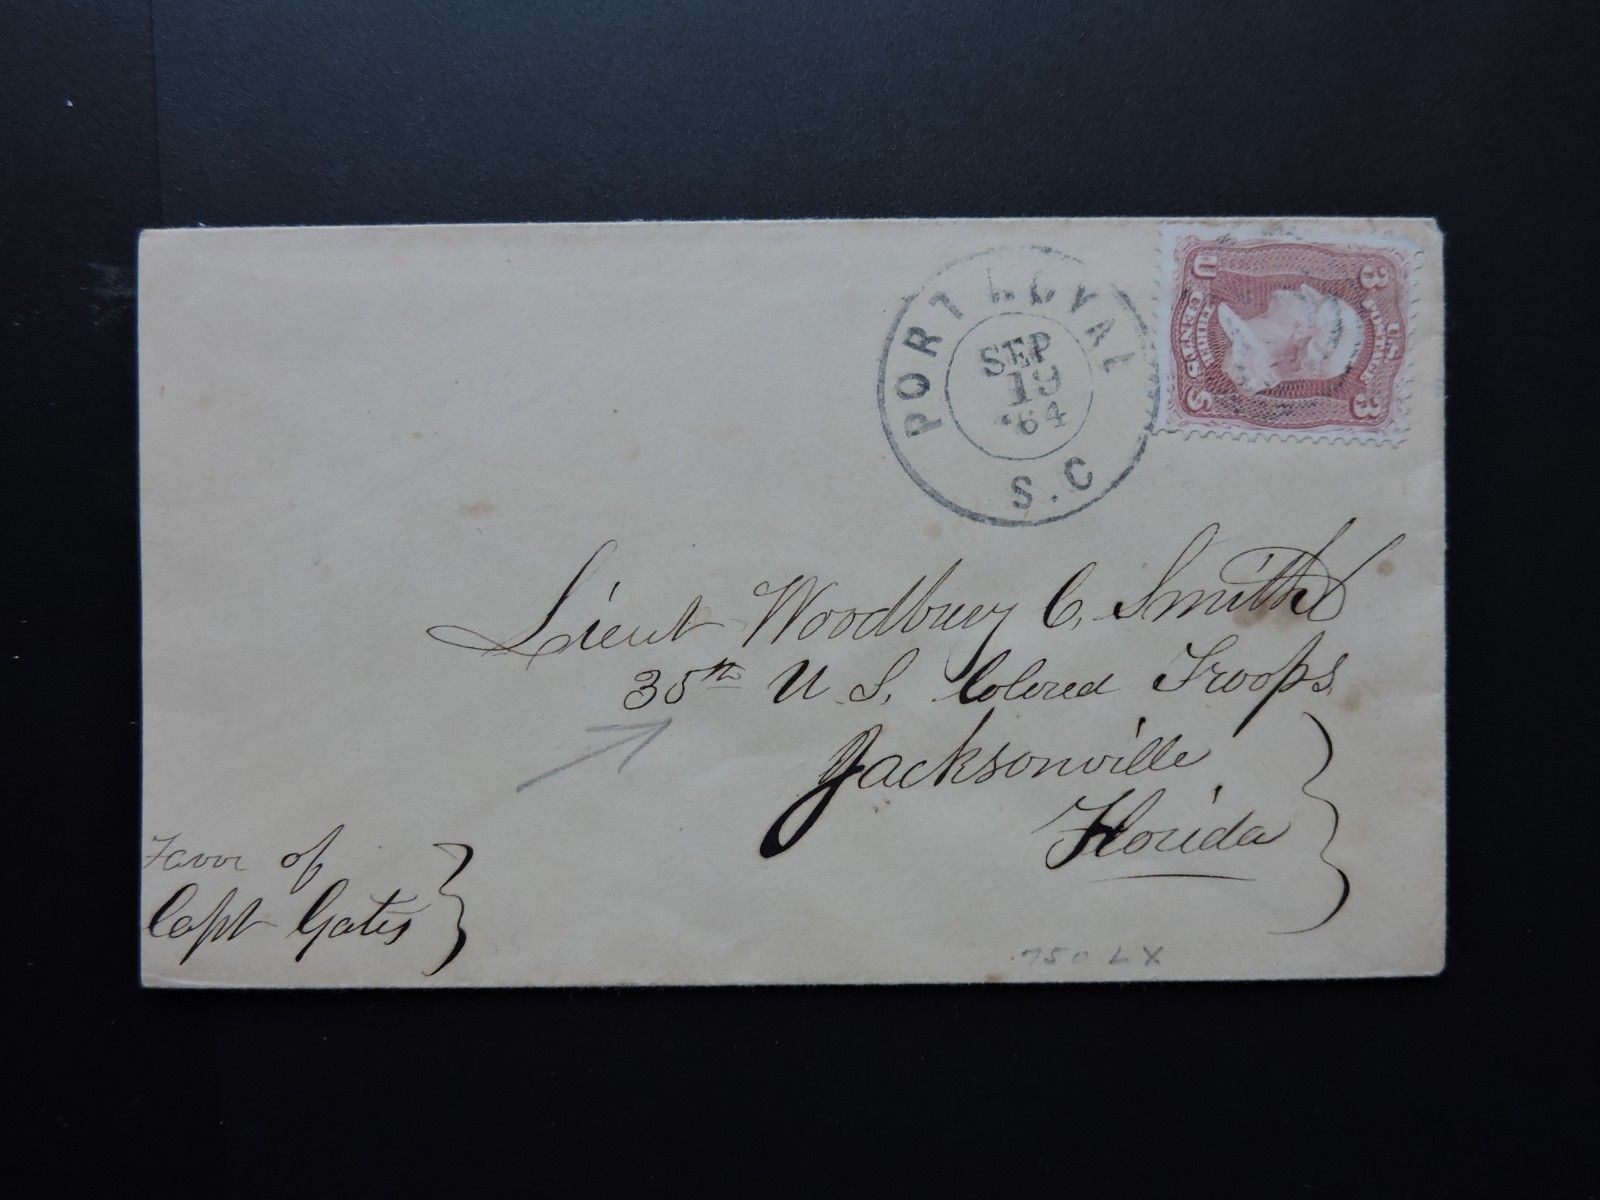 PORT ROYAL
SEP
19
'64
S.C
U.S. POSTAGE
3 3
THREE CENTS
U S
Lieut Woodbury C. Smith
35th U.S. Colored Troops
Jacksonville
Florida
Favor of
Capt Gates
750 LX